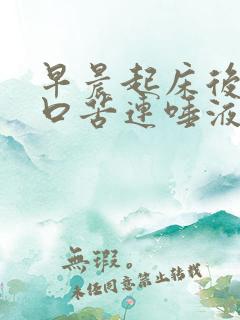 早晨起床後
口苦連唾液
無瑕。
未经同意禁止转载